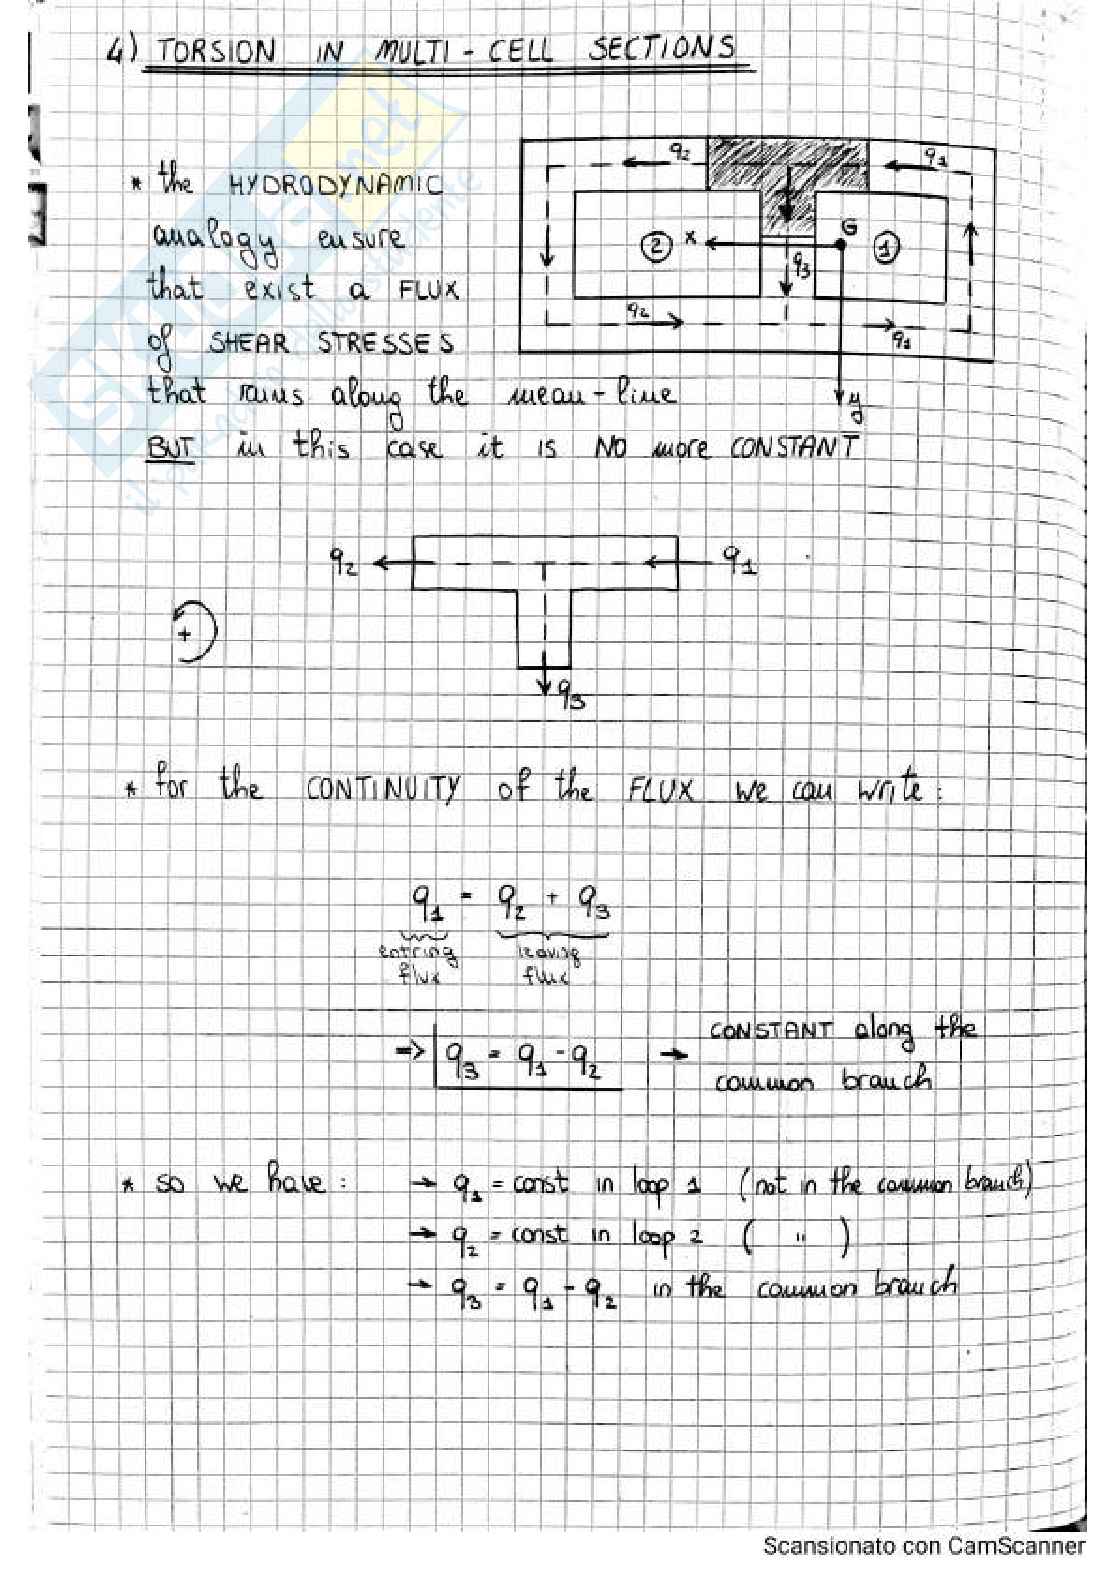 4) TORSION IN MULTI-CELL SECTIONS
* the HYDRODYNAMIC
analogy ensure
that exist a FLUX
of SHEAR STRESSES
that runs along the mean-line
BUT in this case it is NO more CONSTANT
q2 q1
2 x G 1
q3
q2 q1
y
q2 q1
+
q3
* for the CONTINUITY of the FLUX we can write:
q1 = q2 + q3
entring leaving
flux flux
=> q3 = q1 - q2 → CONSTANT along the
common branch
* so we have: → q1 = const in loop 1 (not in the common branch)
→ q2 = const in loop 2 ( " )
→ q3 = q1 - q2 in the common branch
Scansionato con CamScanner